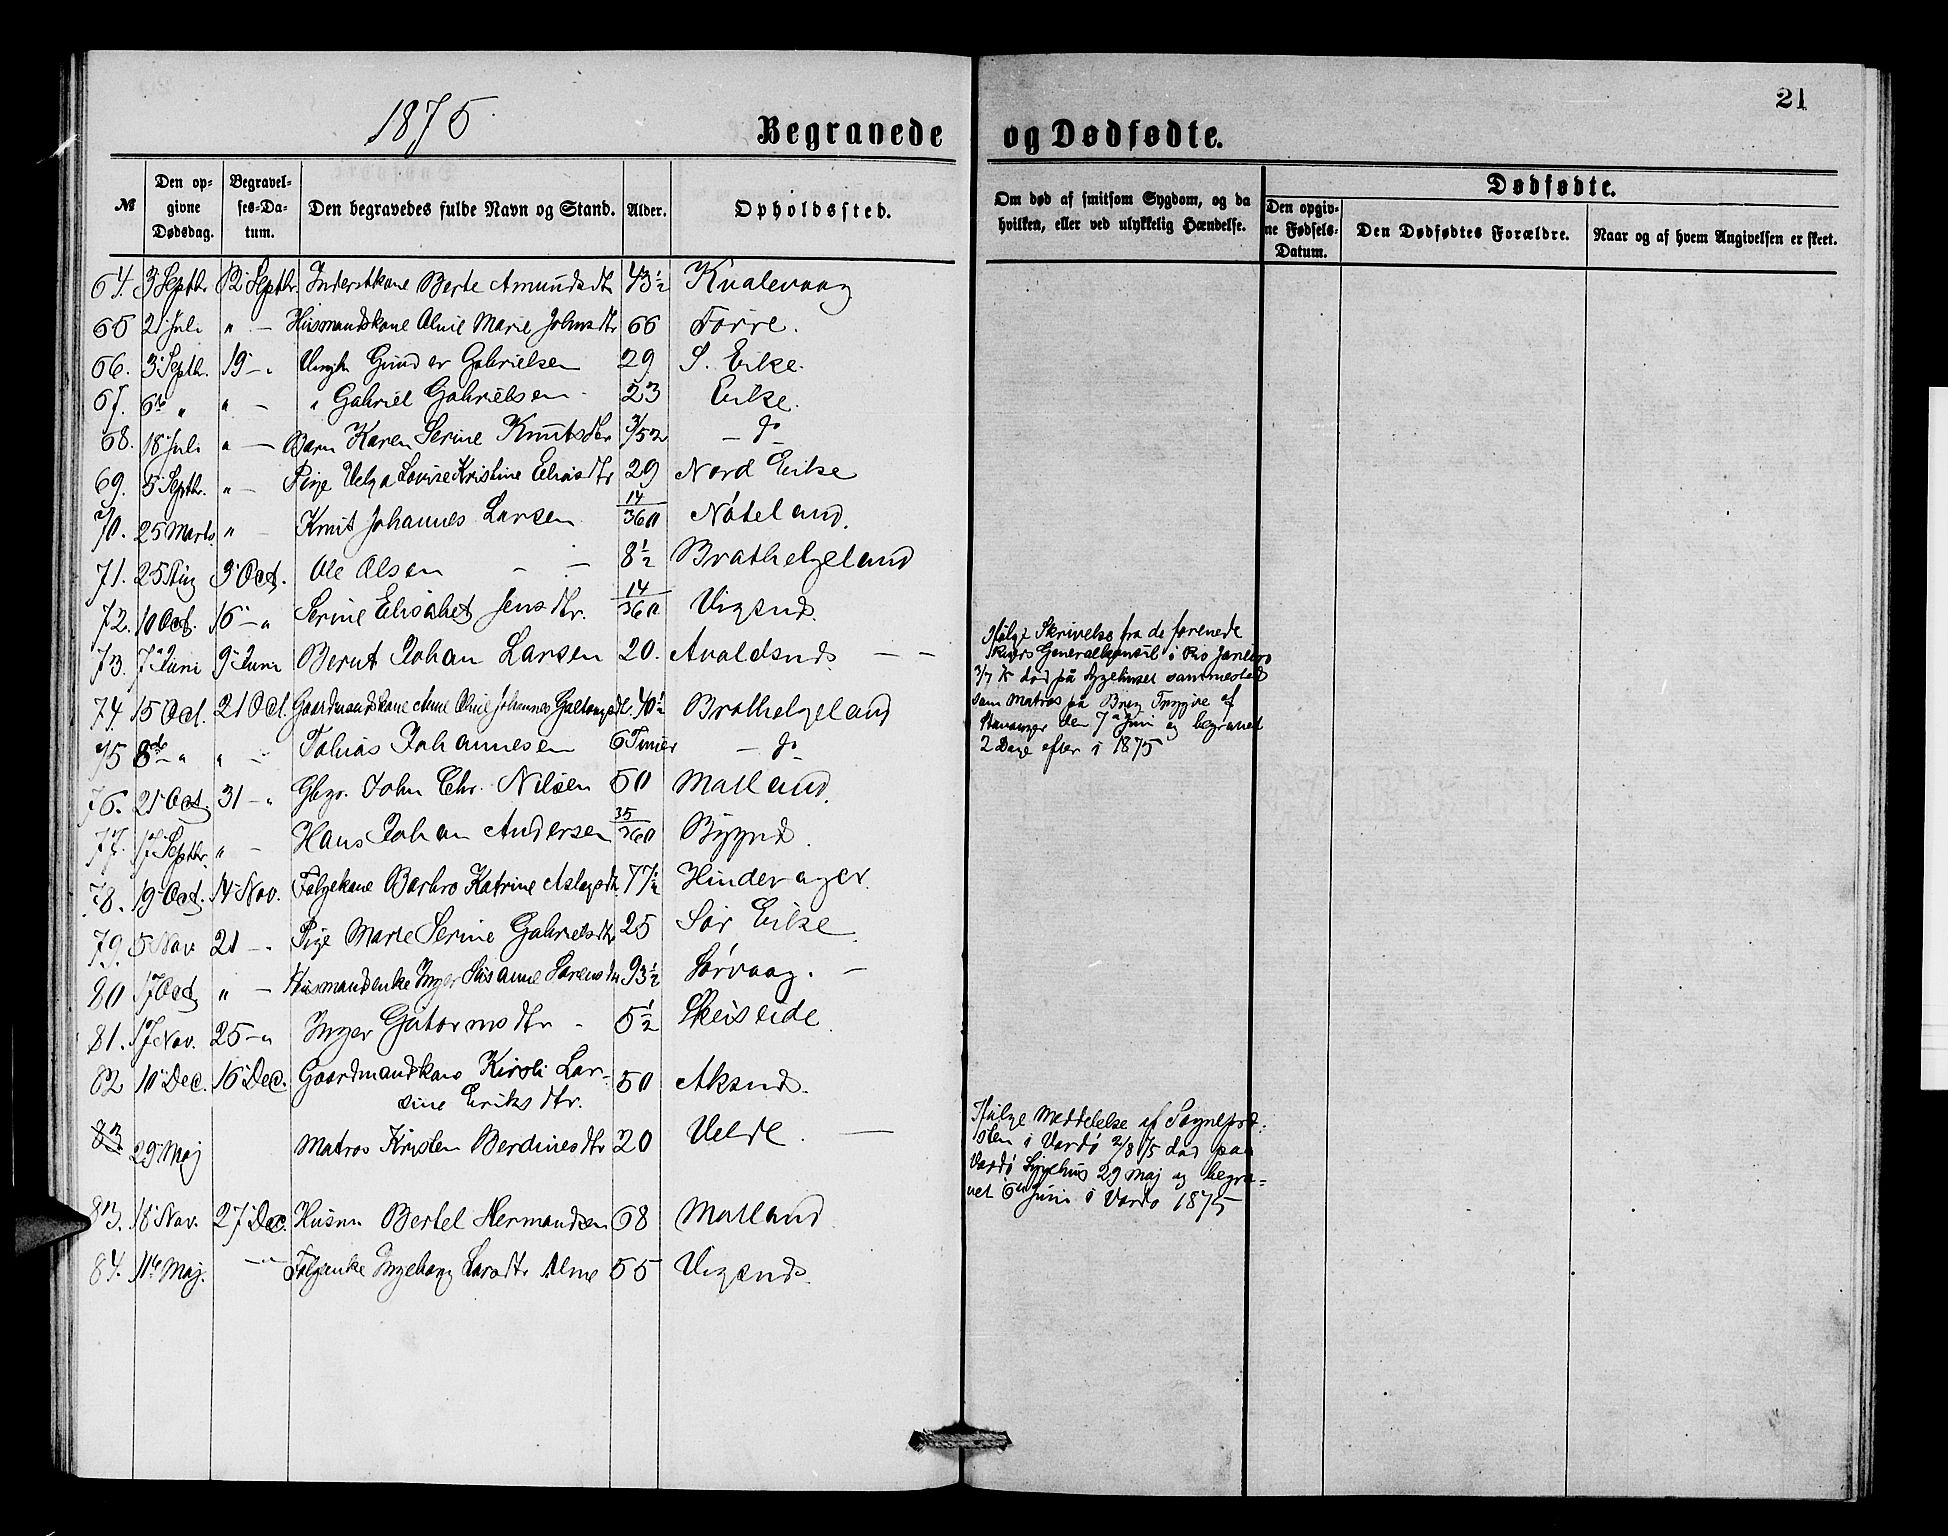 1875
21
Begravede og Dødfødte.
№
Den opgivne Dødsdag.
Begravelses-Datum.
Den begravedes fulde Navn og Stand.
Alder.
Opholdssted.
Om død af smitsom Sygdom, og da hvilken, eller ved ulykkelig Hændelse.
Dødfødte.
Den opgivne Fødsels-Datum.
Den Dødfødtes Forældre.
Naar og af hvem Angivelsen er skeet.
64. 3 Septbr. 12 Septbr. Inderstkone Berte Amundsdtr 43½ Kvalevaag
65 21 Juli " – Husmandskone Alvie Marie Johnsdtr 66 Förre.
66. 3 Septbr. 19 – " Gunder Gabrielsen 29 S. Eike.
67. 6te " " – " Gabriel Gabrielsen 23 Eike.
68. 18 Juli " – Barn Karen Serine Knutsdtr 3/52 – do
69. 5 Septbr. " – Pige Helga Lovise Kristine Eliasdtr 29 Nord Eike
70. 25 Marts " – Knut Johannes Larsen 14/360 Nöteland.
71. 25 Aug 3 Oct. Ole Olsen – – 8½ Brathelgeland
72. 10 Oct. 16 – " Serine Elisabet Jensdtr. 14/360 Vigsnæs.
73. 7 Juni 9 Juni Bernt Johan Larsen 20. Avaldsnæs – –
Ifölge Skrivelse fra de forenede
Rigers Generalkonsul i Rio Janeiro
3/7 75 död på Sygehuset sammesteds
som Matros på Brig Trygve af
Stavanger den 7de Juni og begravet
2 Dage efter i 1875
74. 15 Oct. 21 Oct. Gaardmandskone Anne Alvie Johannes 40½ Brathelgeland
75 8de – " " – Tobias Johannesen 6 Timer – do
76. 21 Oct. 31 – " Gbgr. John Chr. Nilsen 50 Malland.
77. 17 Septbr. " – Hans Johan Andersen 35/360 Bygnæs.
78. 19 Oct. 14 Nov. Folgekone Barbro Katrine Aslagsdtr 77½ Hinderager.
79. 5 Nov 21 – " Pige Marie Serine Gabrielsdtr 25 Sör Eike.
80 17 Oct " – Husmandenke Inger Susanne Sörensdtr 93½ Sörvaag. –
81. 17 Nov. 25 – " Inger Gutormsdtr – 5½ Skeiseide.
82 10 Dec. 16 Dec. Gaardmandskone Kirsti Lar-
sine Eriksdtr. 50 Aksnæs.
83 29 Maj Matros Kristen Berdinesdtr 20 Velde. –
Ifölge Meddelelse af Sognepræ-
sten i Vardö 2/8 75 död paa
Vardö Sygehus 29 Maj og begra-
vet 6te Juni i Vardö 1875
83. 18 Nov. 27 Dec. Husm Bertel Hermandsen 68 Malland.
84. 11te Maj. – " – Folgenke Ingeborg Larsdtr 55 Vigsnæs.